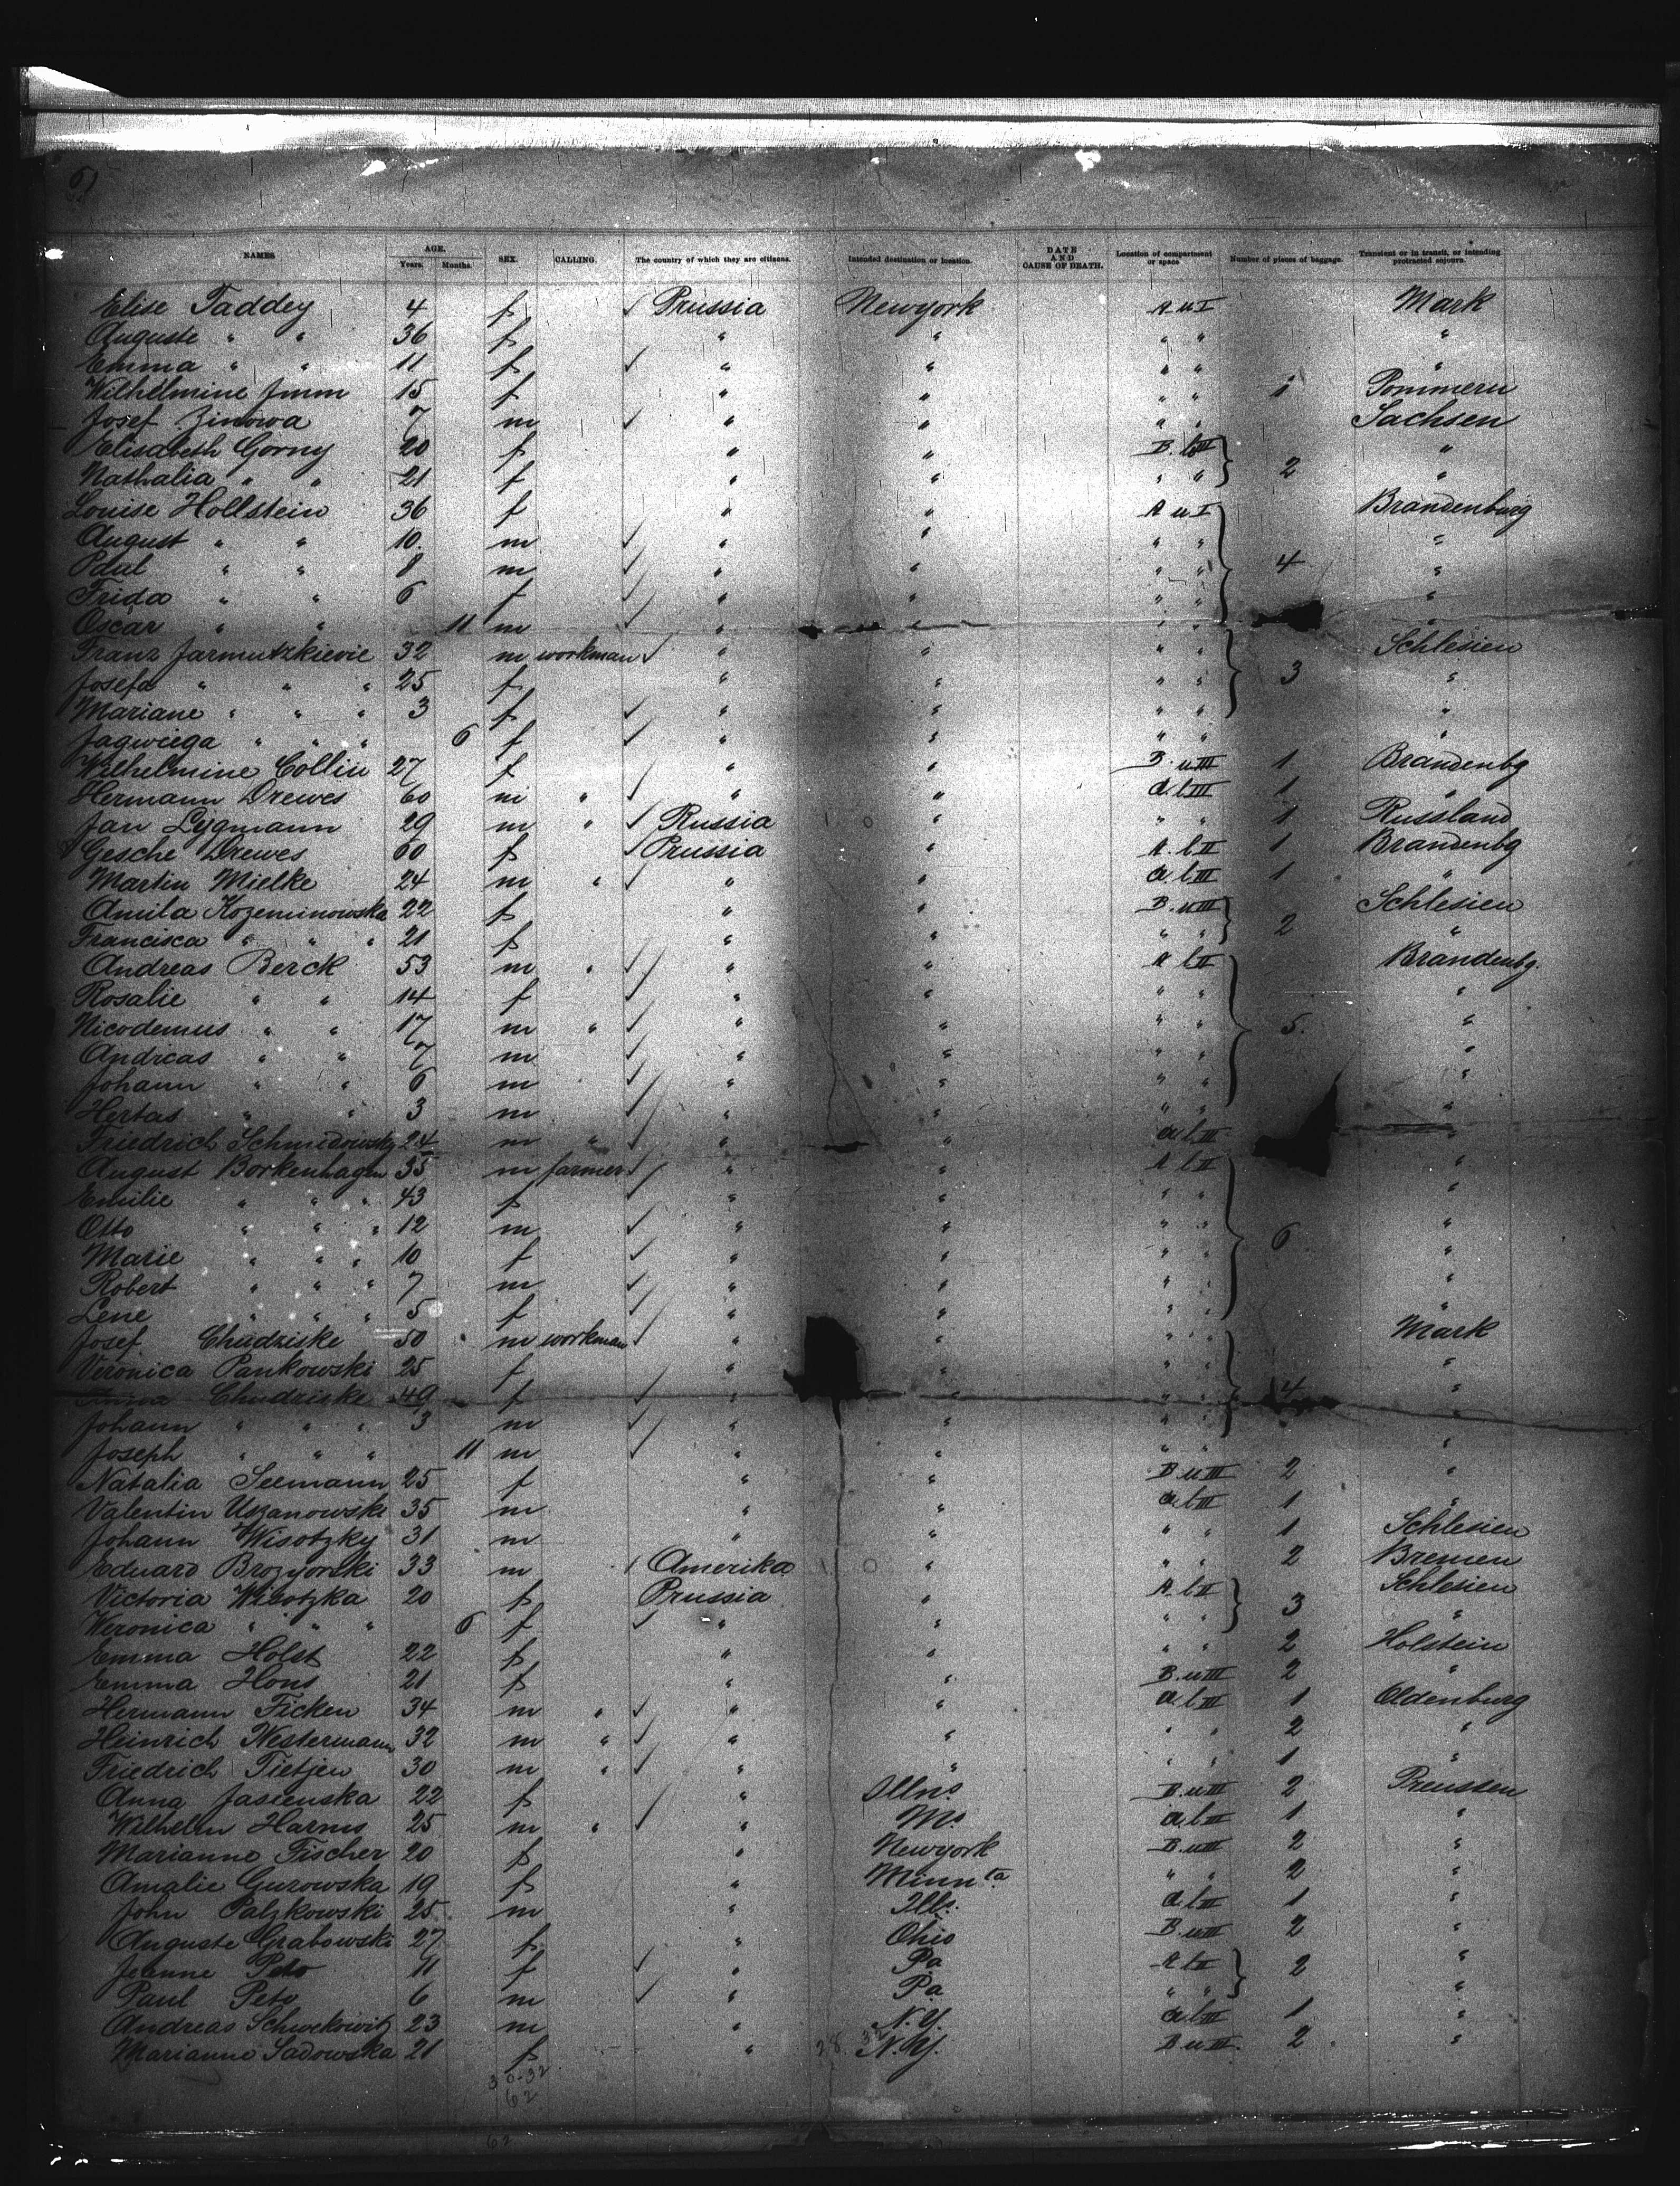 61
NAMES AGE. Years. Months. SEX. CALLING The country of which they are citizens. Intended destination or location. DATE AND CAUSE OF DEATH. Location of compartment or space Number of pieces of baggage. Transient or in transit, or intending protracted sojourn.
Elise Taddey 4 f ✓ Prussia Newyork A u I Mark
Auguste " " 36 f " " " " "
Emma " " 11 f ✓ " " " " "
Wilhelmine Jmm 15 f " " " " 1 Pommern
Josef Zinowa 7 m ✓ " " " " Sachsen
Elisabeth Gorny 20 f " " B. l III "
Nathalia " " 21 f " " " " 2 "
Louise Hollstein 36 f " " A u I Brandenburg
August " " 10 m ✓ " " " " "
Paul " " 8 m ✓ " " " " 4 "
Frida " " 6 f ✓ " " " " "
Oscar " " 11 m ✓ " " " " "
Franz Jarmutzkievic 32 m workman ✓ " " " " Schlesien
Josefa " " " 25 f " " " " 3 "
Mariane " " " 3 f ✓ " " " " "
Jagwiega " " " 6 f ✓ " " " " "
Wilhelmine Collin 27 f " " B. u III 1 Brandenbg
Hermann Drewes 60 m " ✓ " " a. l III 1 "
Jan Lygmann 29 m " ✓ Russia " " " 1 Russland
Gesche Drewes 60 f ✓ Prussia " A. l II 1 Brandenbg
Martin Mielke 24 m " ✓ " " a l III 1 "
Amila Kozeminowska 22 f " " B. u III Schlesien
Francisca " " " 21 f " " " " 2 "
Andreas Berck 53 m " ✓ " " A l II Brandenbg.
Rosalie " " 14 f ✓ " " " " "
Nicodemus " " 17 m " ✓ " " " " 5. "
Andreas " " 7 m ✓ " " " " "
Johann " " 6 m ✓ " " " " "
Hertas " " 3 m ✓ " " " " "
Friedrich Schmidowsky 24 m " ✓ " " a l III "
August Borkenhagen 35 m farmer ✓ " " A l II "
Emilie " " " 43 f " " " " "
Otto " " " 12 m ✓ " " " " "
Marie " " " 10 f ✓ " " " " 6 "
Robert " " " 7 m ✓ " " " " "
Lene " " " 5 f ✓ " " " " "
Josef Chudziske 50 m workman ✓ " " " " Mark
Veronica Pankowski 25 f " " " " "
Anna Chudziske 49 f ✓ " " " " 4 "
Johann " " " 3 m ✓ " " " "
Joseph " " " 11 m ✓ " " " " "
Natalia Seemann 25 f " " B u III 2 "
Valentin Uszanowski 35 m " " a l III 1 "
Johann Wisotzky 31 m " " " " 1 Schlesien
Eduard Brozyonski 33 m Amerika " " " 2 Bremen
Victoria Wisotzka 20 f Prussia " A l II Schlesien
Veronica " " " 6 f ✓ " " " " 3 "
Emma Holst 22 f " " " " 2 Holstein
Emma Hons 21 f " " B. u III 2 "
Hermann Ficken 34 m " ✓ " " a l III 1 Oldenburg
Heinrich Westermann 32 m " ✓ " " " " 2 "
Friedrich Tietjen 30 m " ✓ " " " " 1 "
Anna Jasienska 22 f " Illns B. u III 2 Preussen
Wilhelm Harms 25 m " ✓ " Mo a l II 1 "
Marianne Fischer 20 f " Newyork B. u III 2 "
Amalie Gurowska 19 f " Minnta " " 2 "
John Palzkowski 25 m " Ills. a l II 1 "
Auguste Grabowski 27 f " Ohio B u III 2 "
Jeanne Peto 11 f ✓ " Pa A l II 2 "
Paul Peto 6 m ✓ " Pa " " "
Andreas Schwekowitz 23 m " N.Y. a l III 1 "
Marianne Sadowska 21 f " N.Y. B u III. 2 "
30-32
62
62